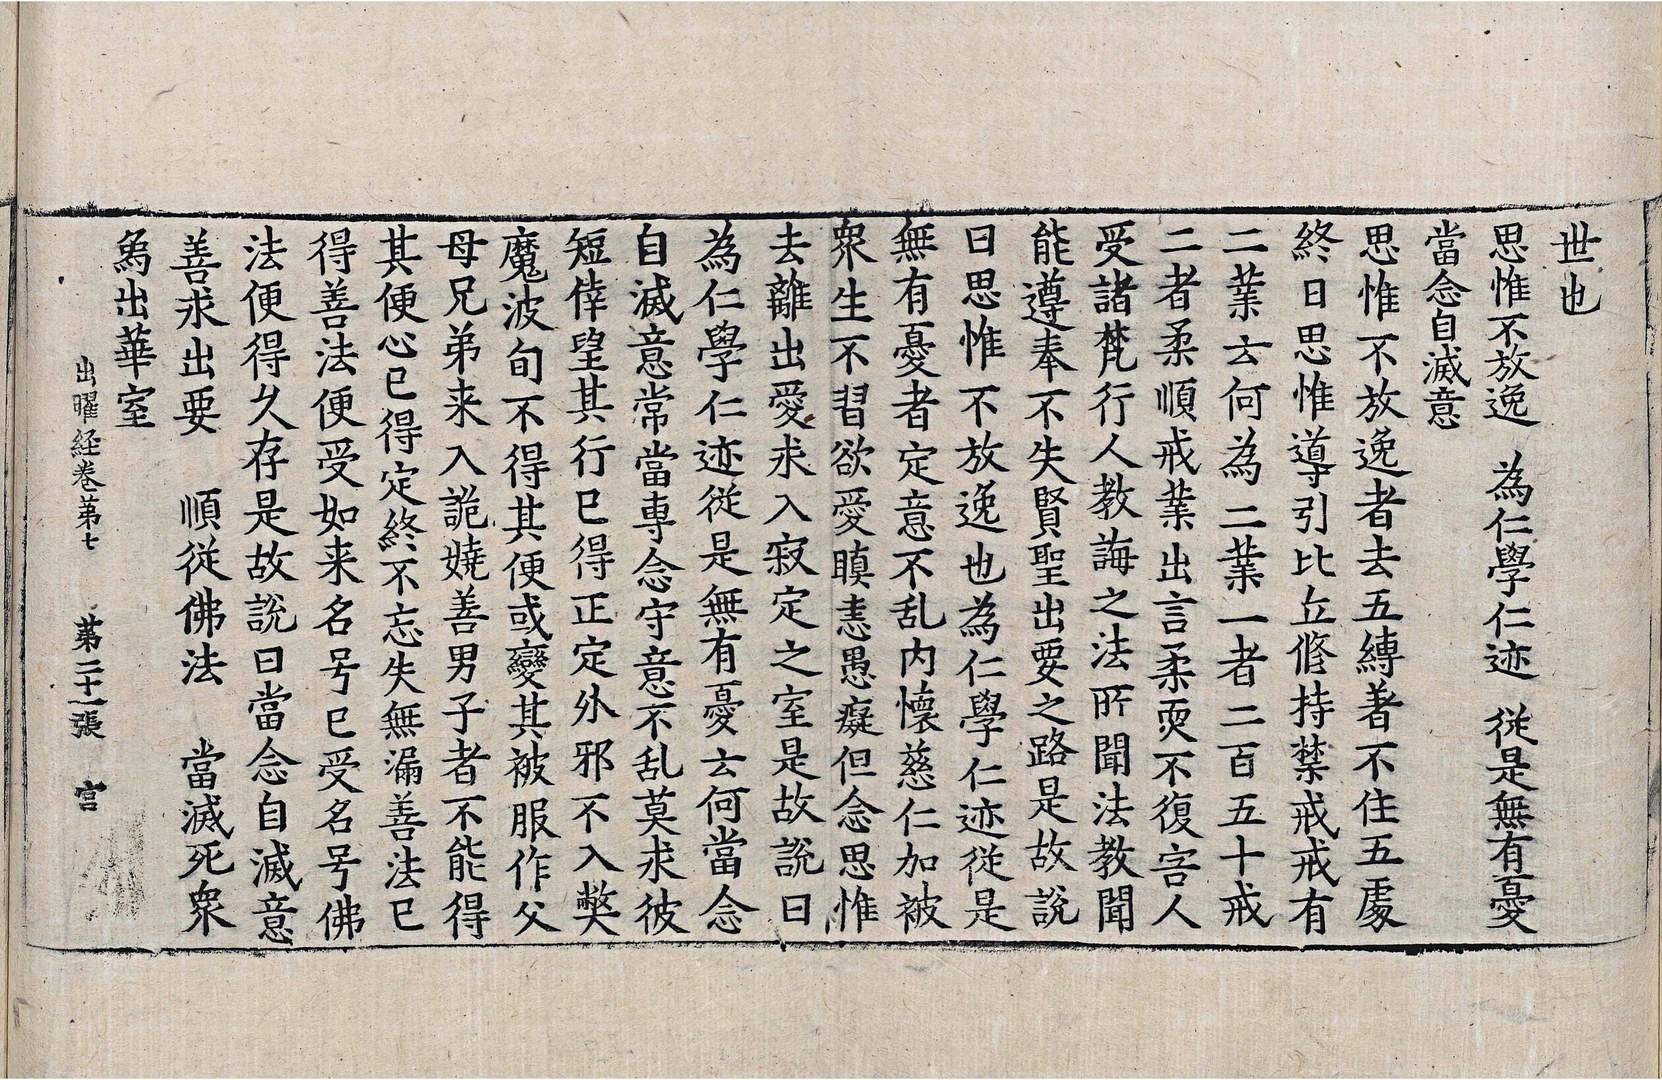 世也
思惟不放逸　為仁學仁迹　從是無有憂
當念自滅意
思惟不放逸者去五縛著不住五處
終日思惟導引比丘脩持禁戒戒有
二業云何為二業一者二百五十戒
二者柔順戒業出言柔耎不復害人
受諸梵行人教誨之法所聞法教聞
能遵奉不失賢聖出要之路是故說
曰思惟不放逸也為仁學仁迹從是
無有憂者定意不乱內懷慈仁加被
衆生不習欲愛瞋恚愚癡但念思惟
去離出愛求入寂定之室是故說曰
為仁學仁迹從是無有憂云何當念
自滅意常當專念守意不乱莫求彼
短倖望其行已得正定外邪不入獘
魔波旬不得其便或變其被服作父
母兄弟来入詭嬈善男子者不能得
其便心已得定終不忘失無漏善法已
得善法便受如来名号已受名号佛
法便得久存是故說曰當念自滅意
善求出要　順從佛法　當滅死衆
為出華室
出曜経卷第七　第二十一張　宮